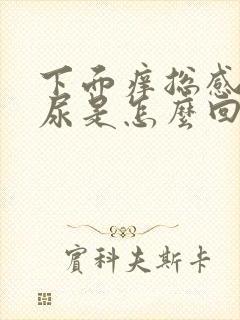 下面痒总感
尿是怎麽回
賓科夫斯卡